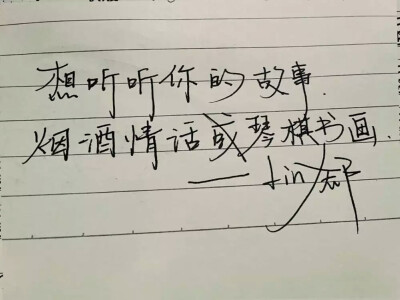 想听听你的故事.
烟酒情话或琴棋书画.